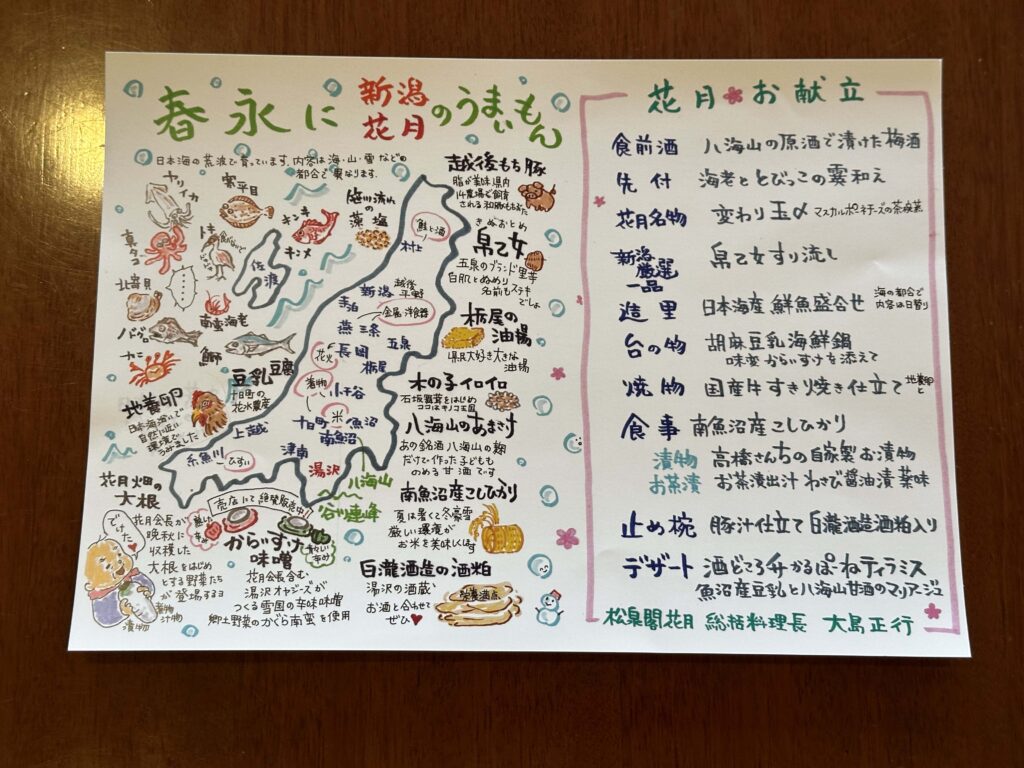 春永に
新潟
花月
のうまいもん
日本海の荒波で育っています。内容は海・山・雪などの
都合で異なります。
ヤリイカ
寒平目
キンキ
キンメ
真タコ
北寄貝
南蛮海老
バイ
カニ
鰤
笹川流れの
藻塩
佐渡
鮭と酒
村上
越後
平野
新潟
寺泊
金属 洋食器
燕 三条
五泉
花火
長岡
栃尾
着物
小千谷
米
十日町
魚沼
南魚沼
上越
津南
湯沢
糸魚川
ひすい
八海山
谷川連峰
豆乳 豆腐
十日町の
花水農産
地養卵
日本海沿いで
自然に近い
環境で
うみました
花月畑の
大根
でけた
花月会長が
晩秋に
収穫した
大根をはじめ
とする野菜たち
が登場するヨ
煮物
汁物
漬物
売店にて絶賛販売中!
からいすけ
味噌
花月会長含む
湯沢オヤジーズが
つくる雪国の辛味味噌
郷土野菜のかぐら南蛮を使用
越後もち豚
脂が美味 県内
14農場で飼育
される和豚もちぶた
きぬおとめ
帛乙女
五泉のブランド里芋
白肌とぬめり
名前もステキ
でしょ
栃尾の
油揚
県民大好き大きな
油揚
木の子イロイロ
石坂舞茸をはじめ
ココはキノコ王国
八海山のあまさけ
あの銘酒八海山の麹
だけで作った子どもも
のめる甘酒です
南魚沼産こしひかり
夏は暑くて冬豪雪
厳しい環境が
お米を美味しくします
白瀧酒造の酒粕
湯沢の酒蔵
お酒と合わせて
ぜひ♥
栄養満点
花月 お献立
食前酒 八海山の原酒で漬けた梅酒
先付 海老ととびっこの霙和え
花月名物 変わり玉〆 マスカルポーネチーズの茶碗蒸
新潟
厳選
一品 帛乙女すり流し
造里 日本海産 鮮魚盛合せ 海の都合で
内容は日替り
台の物 胡麻豆乳海鮮鍋
味変 からいすけを添えて
焼物 国産牛すき焼き仕立て 地養卵
と
食事 南魚沼産こしひかり
漬物 高橋さんちの自家製お漬物
お茶漬 お茶漬出汁 わさび醤油漬 薬味
止め椀 豚汁仕立て 白瀧酒造酒粕入り
デザート 酒どころ升かるぽーねティラミス
魚沼産豆乳と八海山甘酒のマリアージュ
松泉閣花月 総括料理長 大島正行